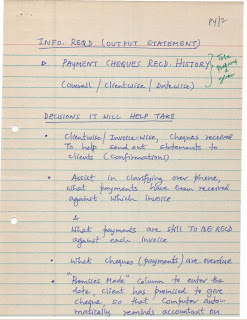 P4/2
INFO. REQD (OUTPUT STATEMENT)
▷ PAYMENT CHEQUES RECD. HISTORY
(Overall / Clientwise / Datewise)
DECISIONS IT WILL HELP TAKE
• Clientwise / Invoice-wise, cheques received
To help send out statements to
clients (confirmations)
• Assist in clarifying over phone,
what payments have been received
against which invoice
&
What payments are still TO BE RECD
against each invoice
• What cheques (payments) are overdue
• "Promises Made" column to enter the
date, client has promised to give
cheque, so that Computer auto-
matically reminds accountant on